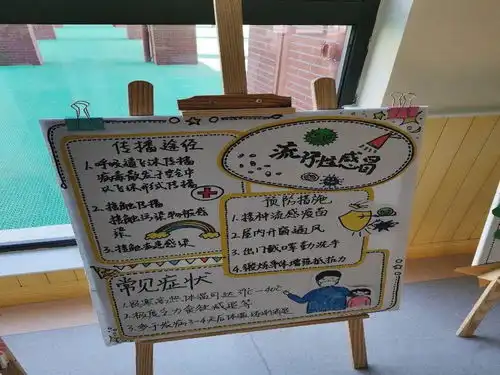 流行性感冒
传播途径
1.呼吸道飞沫传播
病毒散发于空气中
以飞沫形式传播
2.接触传播
接触污染物被感
染
3.接触患者感染
预防措施
1.接种流感疫苗
2.居内开窗通风
3.出门戴口罩勤洗手
4.锻炼身体增强抵抗力
常见症状
1.畏寒高热,体温可达
2.极度乏力食欲减退等
3.多于发病3-4天后体温